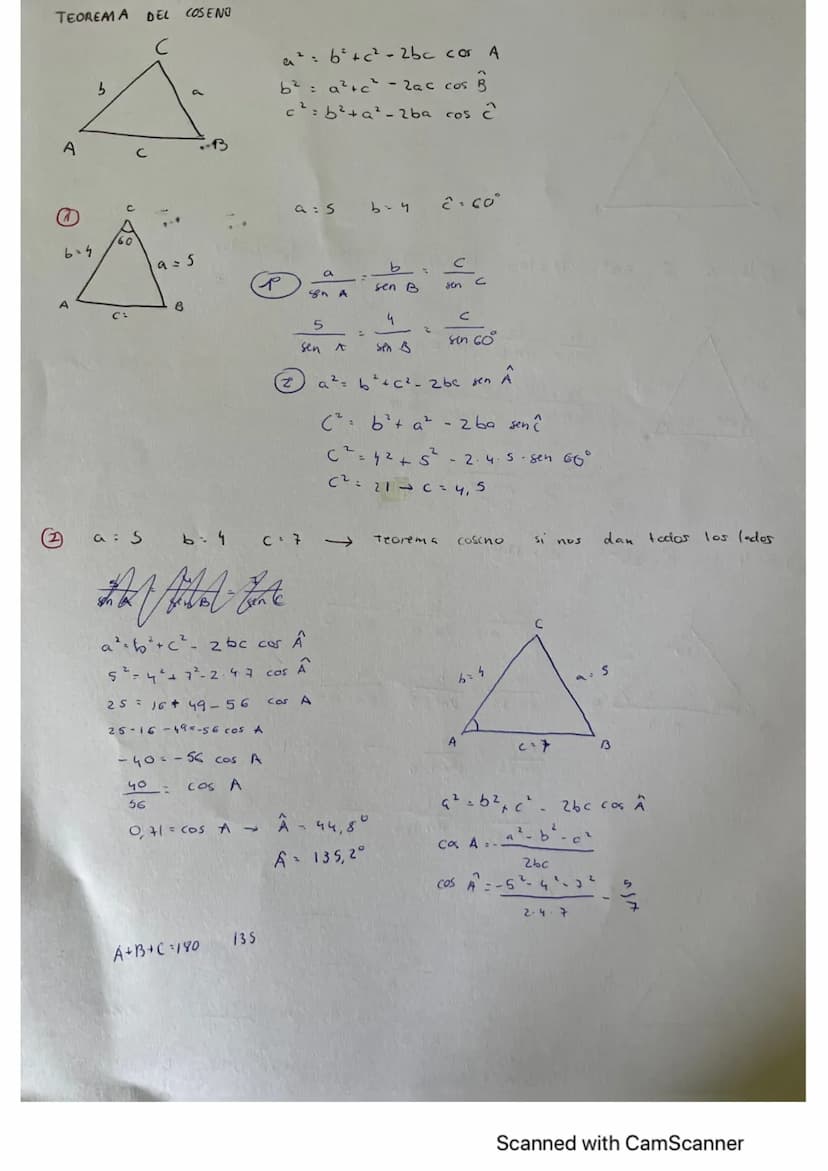 TEOREMA DEL COSENO
C
b
a
A
C
B
a² = b² + c² - 2bc cos A
b² = a² + c² - 2ac cos B̂
c² = b² + a² - 2ba cos Ĉ
①
C
60
b = 4
a = 5
A
B
c =
a = 5 b = 4 Ĉ = 60°
① a/sen A = b/sen B = c/sen C
5/sen A = 4/sen B = c/sen 60°
② a² = b² + c² - 2bc sen Â
C² = b² + a² - 2ba sen Ĉ
C² = 4² + 5² - 2·4·5·sen 60°
C² = 21 → c = 4,5
② a = 5 b = 4 c = 7 → Teorema coseno si nos dan todos los lados
a² = b² + c² - 2bc cos Â
5² = 4² + 7² - 2·4·7 cos Â
25 = 16 + 49 - 56 cos A
25 - 16 - 49 = -56 cos A
-40 = -56 cos A
40/56 = cos A
0,71 = cos A → Â = 44,8°
Â = 135,2°
A + B + C = 180 135
C
b = 4
a = 5
A
c = 7
B
a² = b² + c² - 2bc cos Â
cos A = - a² - b² - c²/2bc
cos Â = - 5² - 4² - 7²/2·4·7 = 5/7
Scanned with CamScanner